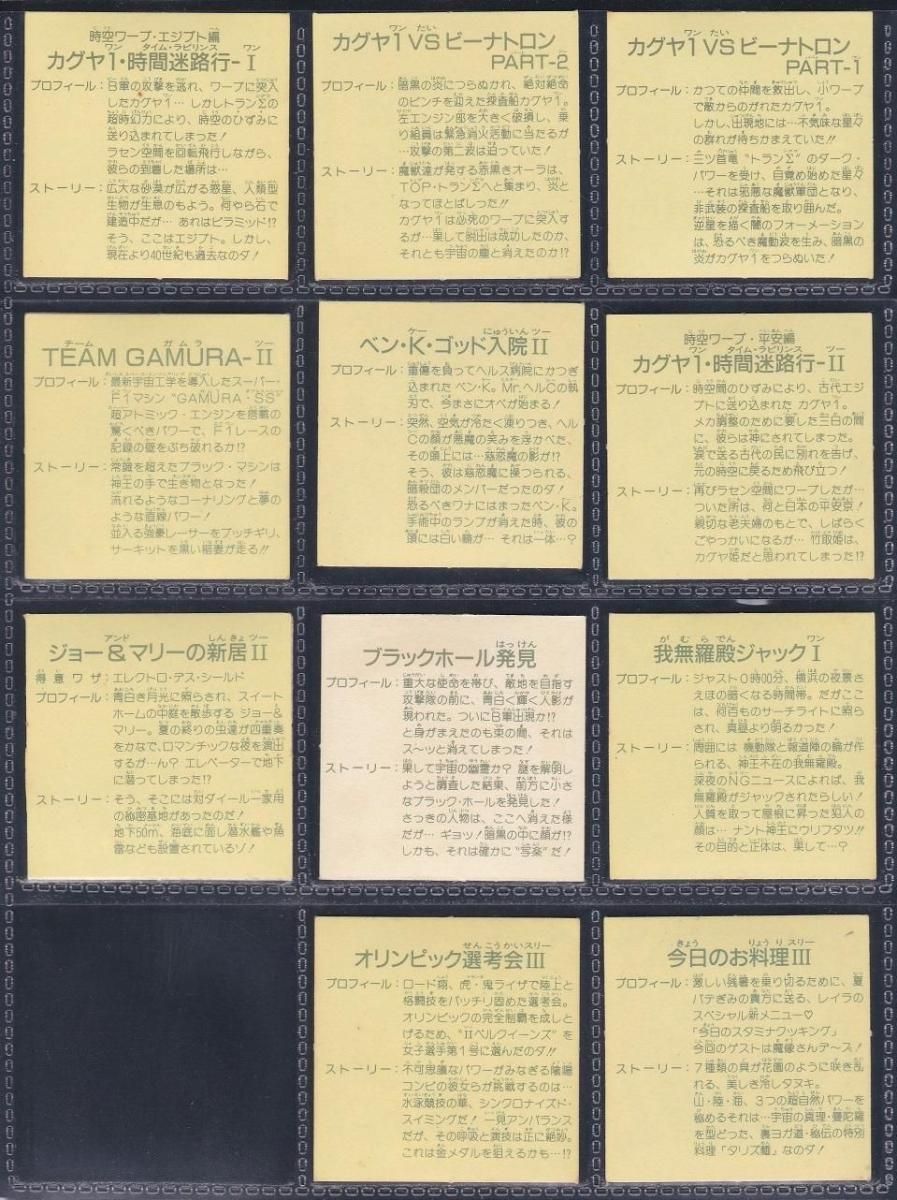 時空ワープ・エジプト編
カグヤ1・時間迷路行-I
プロフィール：B軍の攻撃を逃れ、ワープに突入
したカグヤ1…しかしトランΣの
超時幻力により、時空のひずみに
送り込まれてしまった！
ラセン空間を回転飛行しながら、
彼らの到着した場所は…
ストーリー：広大な砂漠が広がる惑星、人類型
生物が生息のもよう。何やら石で
建造中だが… あれはピラミッド!?
そう、ここはエジプト。しかし、
現在より40世紀も過去なのダ！
カグヤ1 VS ビーナトロン
PART-2
プロフィール：暗黒の炎につらぬかれ、絶対絶命
のピンチを迎えた探査船カグヤ1。
左エンジン部を大きく破損し、乗
り組員は緊急消火活動に当たるが
…攻撃の第二波は迫っていた！
ストーリー：魔獣達が発する赤黒きオーラは、
TOP・トランΣへと集まり、炎と
なってほとばしった!!
カグヤ1は必死のワープに突入す
るが…果して脱出は成功したのか、
それとも宇宙の塵と消えたのか!?
カグヤ1 VS ビーナトロン
PART-1
プロフィール：かつての仲間を救出し、小ワープ
で敵からのがれたカグヤ1。
しかし、出現地には…不気味な星々
の群れが待ちかまえていた!!
ストーリー：三ツ首竜“トランΣ”のダーク・
パワーを受け、目覚め始めた星々
…それは邪悪な魔獣軍団となり、
非武装の探査船を取り囲んだ。
逆星を描く闇のフォーメーション
は、恐るべき魔動波を生み、暗黒の
炎がカグヤ1をつらぬいた！
TEAM GAMURA-II
プロフィール：最新宇宙工学を導入したスーパー・
F1マシン“GAMURA・SS”
超アトミック・エンジンを搭載の
驚くべきパワーで、F1レースの
記録の壁をぶち破れるか!?
ストーリー：常識を超えたブラック・マシンは
神王の手で生き物となった！
流れるようなコーナリングと夢の
ような直線パワー！
並入る強豪レーサーをブッチギリ、
サーキットを黒い稲妻が走る!!
ベン・K・ゴッド入院II
プロフィール：重傷を負ってヘルス病院にかつぎ
込まれた ベン・K。Mr.ヘルCの執
刃で、今まさにオペが始まる！
ストーリー：突然、空気が冷たく凍りつき、ヘル
Cの顔が悪魔の笑みを浮かべた、
その頭上には…慈恋魔の影が!?
そう、彼は慈恋魔に操つられる、
暗殺団のメンバーだったのダ！
恐るべきワナにはまったベン・K。
手術中のランプが消えた時、彼の
頭には白い輪が… それは一体…？
時空ワープ・平安編
カグヤ1・時間迷路行-II
プロフィール：時空間のひずみにより、古代エジ
プトに送り込まれた カグヤ1。
メカ調整のために要した三日の間
に、彼らは神にされてしまった。
涙で送る古代の民に別れを告げ、
元の時空に戻るため飛び立つ！
ストーリー：再びラセン空間にワープしたが…
ついた所は、何と日本の平安京！
親切な老夫婦のもとで、しばらく
ごやっかいになるが… 竹取姫は、
カグヤ姫だと思われてしまった!?
ジョー&マリーの新居II
得意ワザ：エレクトロ・アス・シールド
プロフィール：青白き月光に照らされ、スイート
ホームの中庭を散歩する ジョー&
マリー。夏の終りの虫達が四重奏
をかなで、ロマンチックな夜を演出
するが…ん？ エレベーターで地下
に潜ってしまった!?
ストーリー：そう、そこには対ダイール一家用
の秘密基地があったのだ！
地下50m、海底に面し潜水艦や魚
雷なども設置されているゾ！
ブラックホール発見
プロフィール：重大な使命を帯び、敵地を目指す
攻撃隊の前に、青白く輝く人影が
現われた。ついにB軍出現か!?
と身がまえたのも束の間、それは
ス〜ッと消えてしまった！
ストーリー：果して宇宙の幽霊か？ 謎を解明し
ようと調査した結果、前方に小さ
なブラック・ホールを発見した！
さっきの人物は、ここへ消えた様
だが… ギョッ！暗黒の中に顔が!?
しかも、それは確かに“写楽”だ！
我無羅殿ジャックI
プロフィール：ジャスト0時00分、横浜の夜景さ
えほの暗くなる時間帯。だがここ
は、何百ものサーチライトに照ら
され、真昼より明るかった！
ストーリー：周囲には 機動隊と報道陣の輪が作
られる、神王不在の我無羅殿。
深夜のNGニュースによれば、我
無羅殿がジャックされたらしい！
人質を取って屋根に昇った犯人の
顔は… ナント神王にウリフタツ!!
その目的と正体は、果して…？
オリンピック選考会III
プロフィール：ロード翔、虎・鬼ライザで陸上と
格闘技をバッチリ固めた選考会。
オリンピックの完全制覇を成しと
げるため、“IIベルクイーンズ”を
女子選手第1号に選んだのダ!!
ストーリー：不可思議なパワーがみなぎる陰陽
コンビの彼女らが挑戦するのは…
水泳競技の華、シンクロナイズド・
スイミングだ！ 一見アンバランス
だが、その呼吸と演技は正に絶妙。
これは金メダルを狙えるかも…!?
今日のお料理III
プロフィール：激しい残暑を乗り切るために、夏
バテぎみの貴方に送る、レイラの
スペシャル新メニュー♡
「今日のスタミナクッキング」
今回のゲストは魔像さんデ〜ス！
ストーリー：7種類の具が花園のように咲き乱
れる、美しき冷しタヌキ。
山・陸・海、3つの超自然パワーを
極めるそれは…宇宙の真理・曼陀羅
を型どった、裏ヨガ道・秘伝の特別
料理「タリズ麺」なのダ！